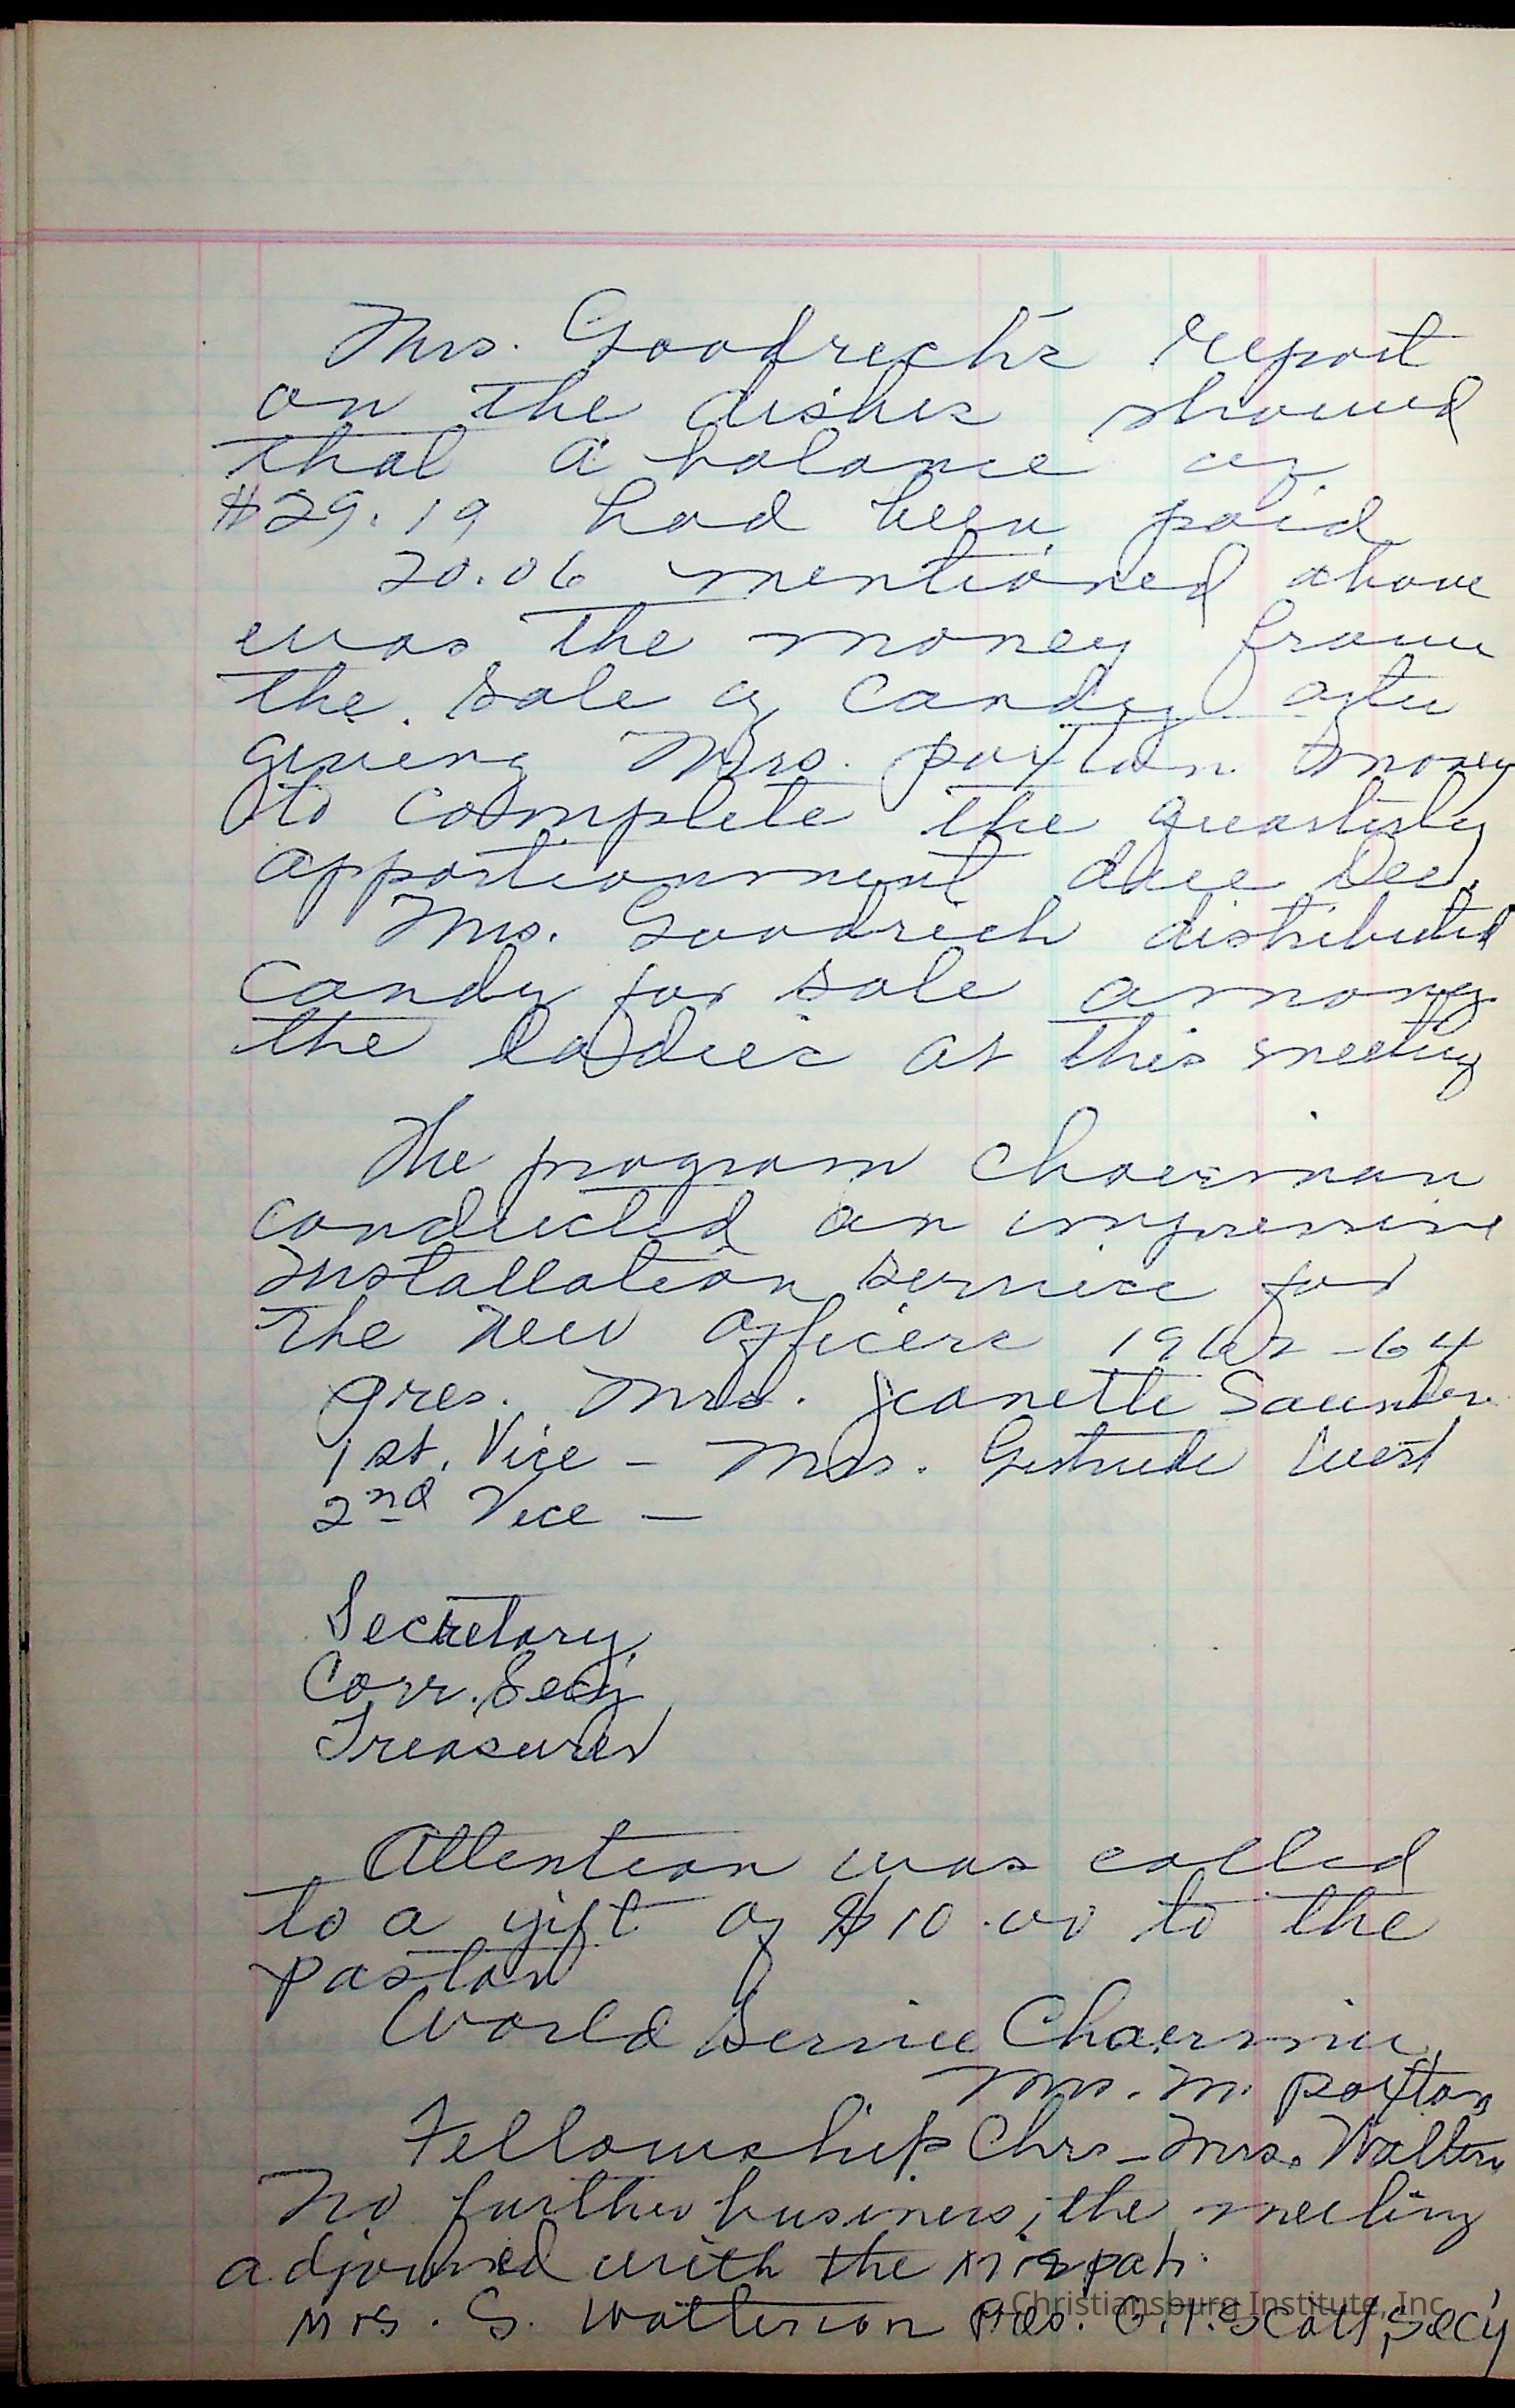 Mrs. Goodrich's report
on the dishes showed
that a balance of
$29.19 had been paid
20.06 mentioned above
was the money from
the sale of candy after
giving Mrs. Paxton money
to complete the quarterly
apportionment due Dec.
Mrs. Goodrich distributed
candy for sale among
the ladies at this meeting
The program chairman
conducted an impressive
installation service for
the new officers -64
Pres. Mrs. Jeanette Saunders
1st. Vice - Mrs. Gertrude West
2nd Vice -
Secretary
Corr. Sec'y
Treasurer
Attention was called
to a gift of $10.00 to the
pastor
World Service Chairman
Mrs. M. Paxton
Fellowship Chrs - Mrs. Walton
No further business, the meeting
adjourned with the mizpah.
Mrs. S. Pres. O.T. Scott, Sec'y
Christiansburg Institute, Inc.